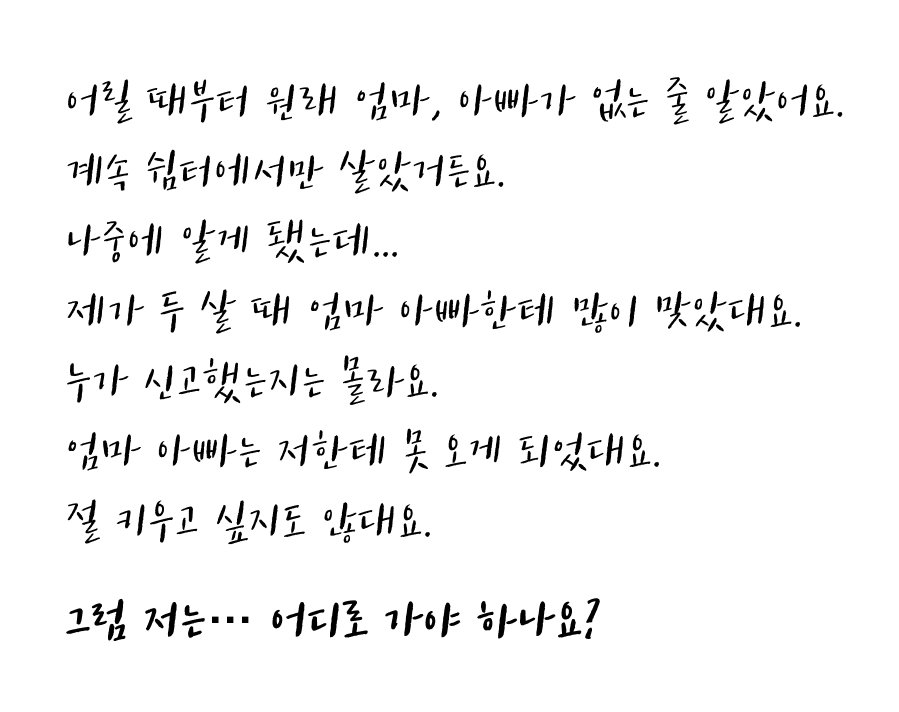 어릴 때부터 원래 엄마, 아빠가 없는 줄 알았어요.
계속 쉼터에서만 살았거든요.
나중에 알게 됐는데...
제가 두 살 때 엄마 아빠한테 많이 맞았대요.
누가 신고했는지는 몰라요.
엄마 아빠는 저한테 못 오게 되었대요.
절 키우고 싶지도 않대요.
그럼 저는··· 어디로 가야 하나요?